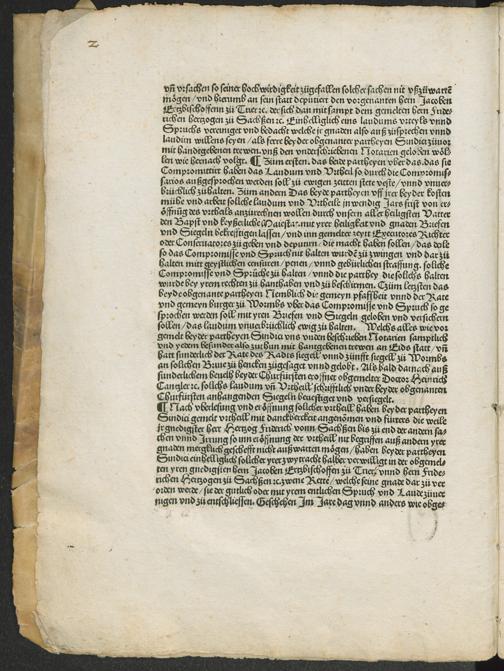 2
vñ vrsachen so seiner hochwirdigkeit zůgefallen solcher sachen nit vßzůwartē
mögen / vnd hierumb an sein statt deputiert den vorgenanten hern Jacoben
Ertzbischoffenn zů Trier ꝛc. der sich dan mit sampt dem gemelten hern Fride-
richen hertzogen zů Sachßen ꝛc. Einhelliglich eins laudums vrteyls vnnd
Spruchs vereiniget vnd bedacht welche jr gnaden also auß zůsprechen vnnd
laudirn willens seyen / als ferre beyder obgenanter partheyen Sindici zůuor
mit handtgebenen trewen vnß den vnderschriebenen Notarien geloben wöl-
len wie hernach volgt. ¶ Zům ersten. das beide partheyen vber das. das sie
Compromittiert haben das Laudum vnd Vrtheil so durch die Compromis-
sarios außgesprochen werden soll zů ewigen zeitten stete veste / vnnd vnuer-
brüchlich zůhalten. Zům andern Das beyde partheyen vff jrer beyder kosten
mühe vnd arbeit soliche laudum vnd Vrtheile inwendig Jars frist von er-
öffnüg des vrtheils anzůrechnen wollen durch vnsern aller heiligsten Vatter
den Bapst vnd keyßerliche Maiestat mit yrer heiligkeit vnd gnaden Brieuen
vnd Siegeln bekrefftigen lassen / vnd inn gemelter zeyt Executores Richter
oder Conseruatores zů geben vnd deputirn / die macht haben sollen / das teile
so das Compromisse vnd Spruch nit halten wurde zů zwingen vnd dar zů
halten mit geystlichen censuren / penen / vnnd gebürlichen straffung. soliche
Compromisse vnd Sprüche zů halten / vnnd die parthey die sollichs halten
wurde bey yrem rechten zů hanthaben vnd zů beschirmen. Czům letzsten das
beyde obgenante partheyen Nemblich die gemeyn pfaffheit vnnd der Rate
vnd gemeyn burger zů Wormbs vber das Compromisse vnd Spruch so ge
sprochen werden soll mit yren Brieuen vnd Siegeln geloben vnd versichern
sollen / das laudum vnuerbrüchlich ewig zů halten. Welchs alles wie vor
gemelt beyder partheyen Sindici vns vnden beschrieben Notarien samptlich
vnd yedem besunder als zuthun mit hantgebenen trewen an Eids statt / vñ
hatt sunderlich der Rate des Radts siegell vnnd zünfft siegell zů Wormbs
an solichen Brieue zů hencken zůgesaget vnnd gelobt. Als bald darnach auß
sunderlichem beuelh beyder Churfürsten eroffnet obgemelter Doctor Heinrich
Cantzler ꝛc. solichs laudum vñ Vrtheill schrifftlich vnder beyder obgenanten
Churfürsten anhangenden Siegeln beuestiget vnd versiegelt.
¶ Nach vberlesung vnd eröffnung solicher vrtheill haben beyder partheyen
Sindici gemelt vrtheill mit danckberckeit angenömen vnd fürters die weile
jr gnedigister herr Hertzog Friderich vonn Sachßen bis zů end der andern sa-
chen vnnd Irrung so inn eröffnung der vrtheill nit begriffen auß andern yrer
gnaden mergklich geschefft nicht auß warten mögen / haben beyder partheyen
Sindici einhelliglich solicher yrer zwytracht halber verwilligt in der obgemel-
ten yren gnedigsten hern Jacoben Ertzbischoffen zů Trier / vnnd hern Fride-
richen Hertzogen zů Sachßen ꝛc. zwene Rette / welche seine gnade dar zů ver
orden werde / sie der gütlich oder mit yrem entlichen Spruch vnd Laude zůuer
nigen vnd zů entschliessen. Geschehen Im Jare dag vnnd anders wie obge-